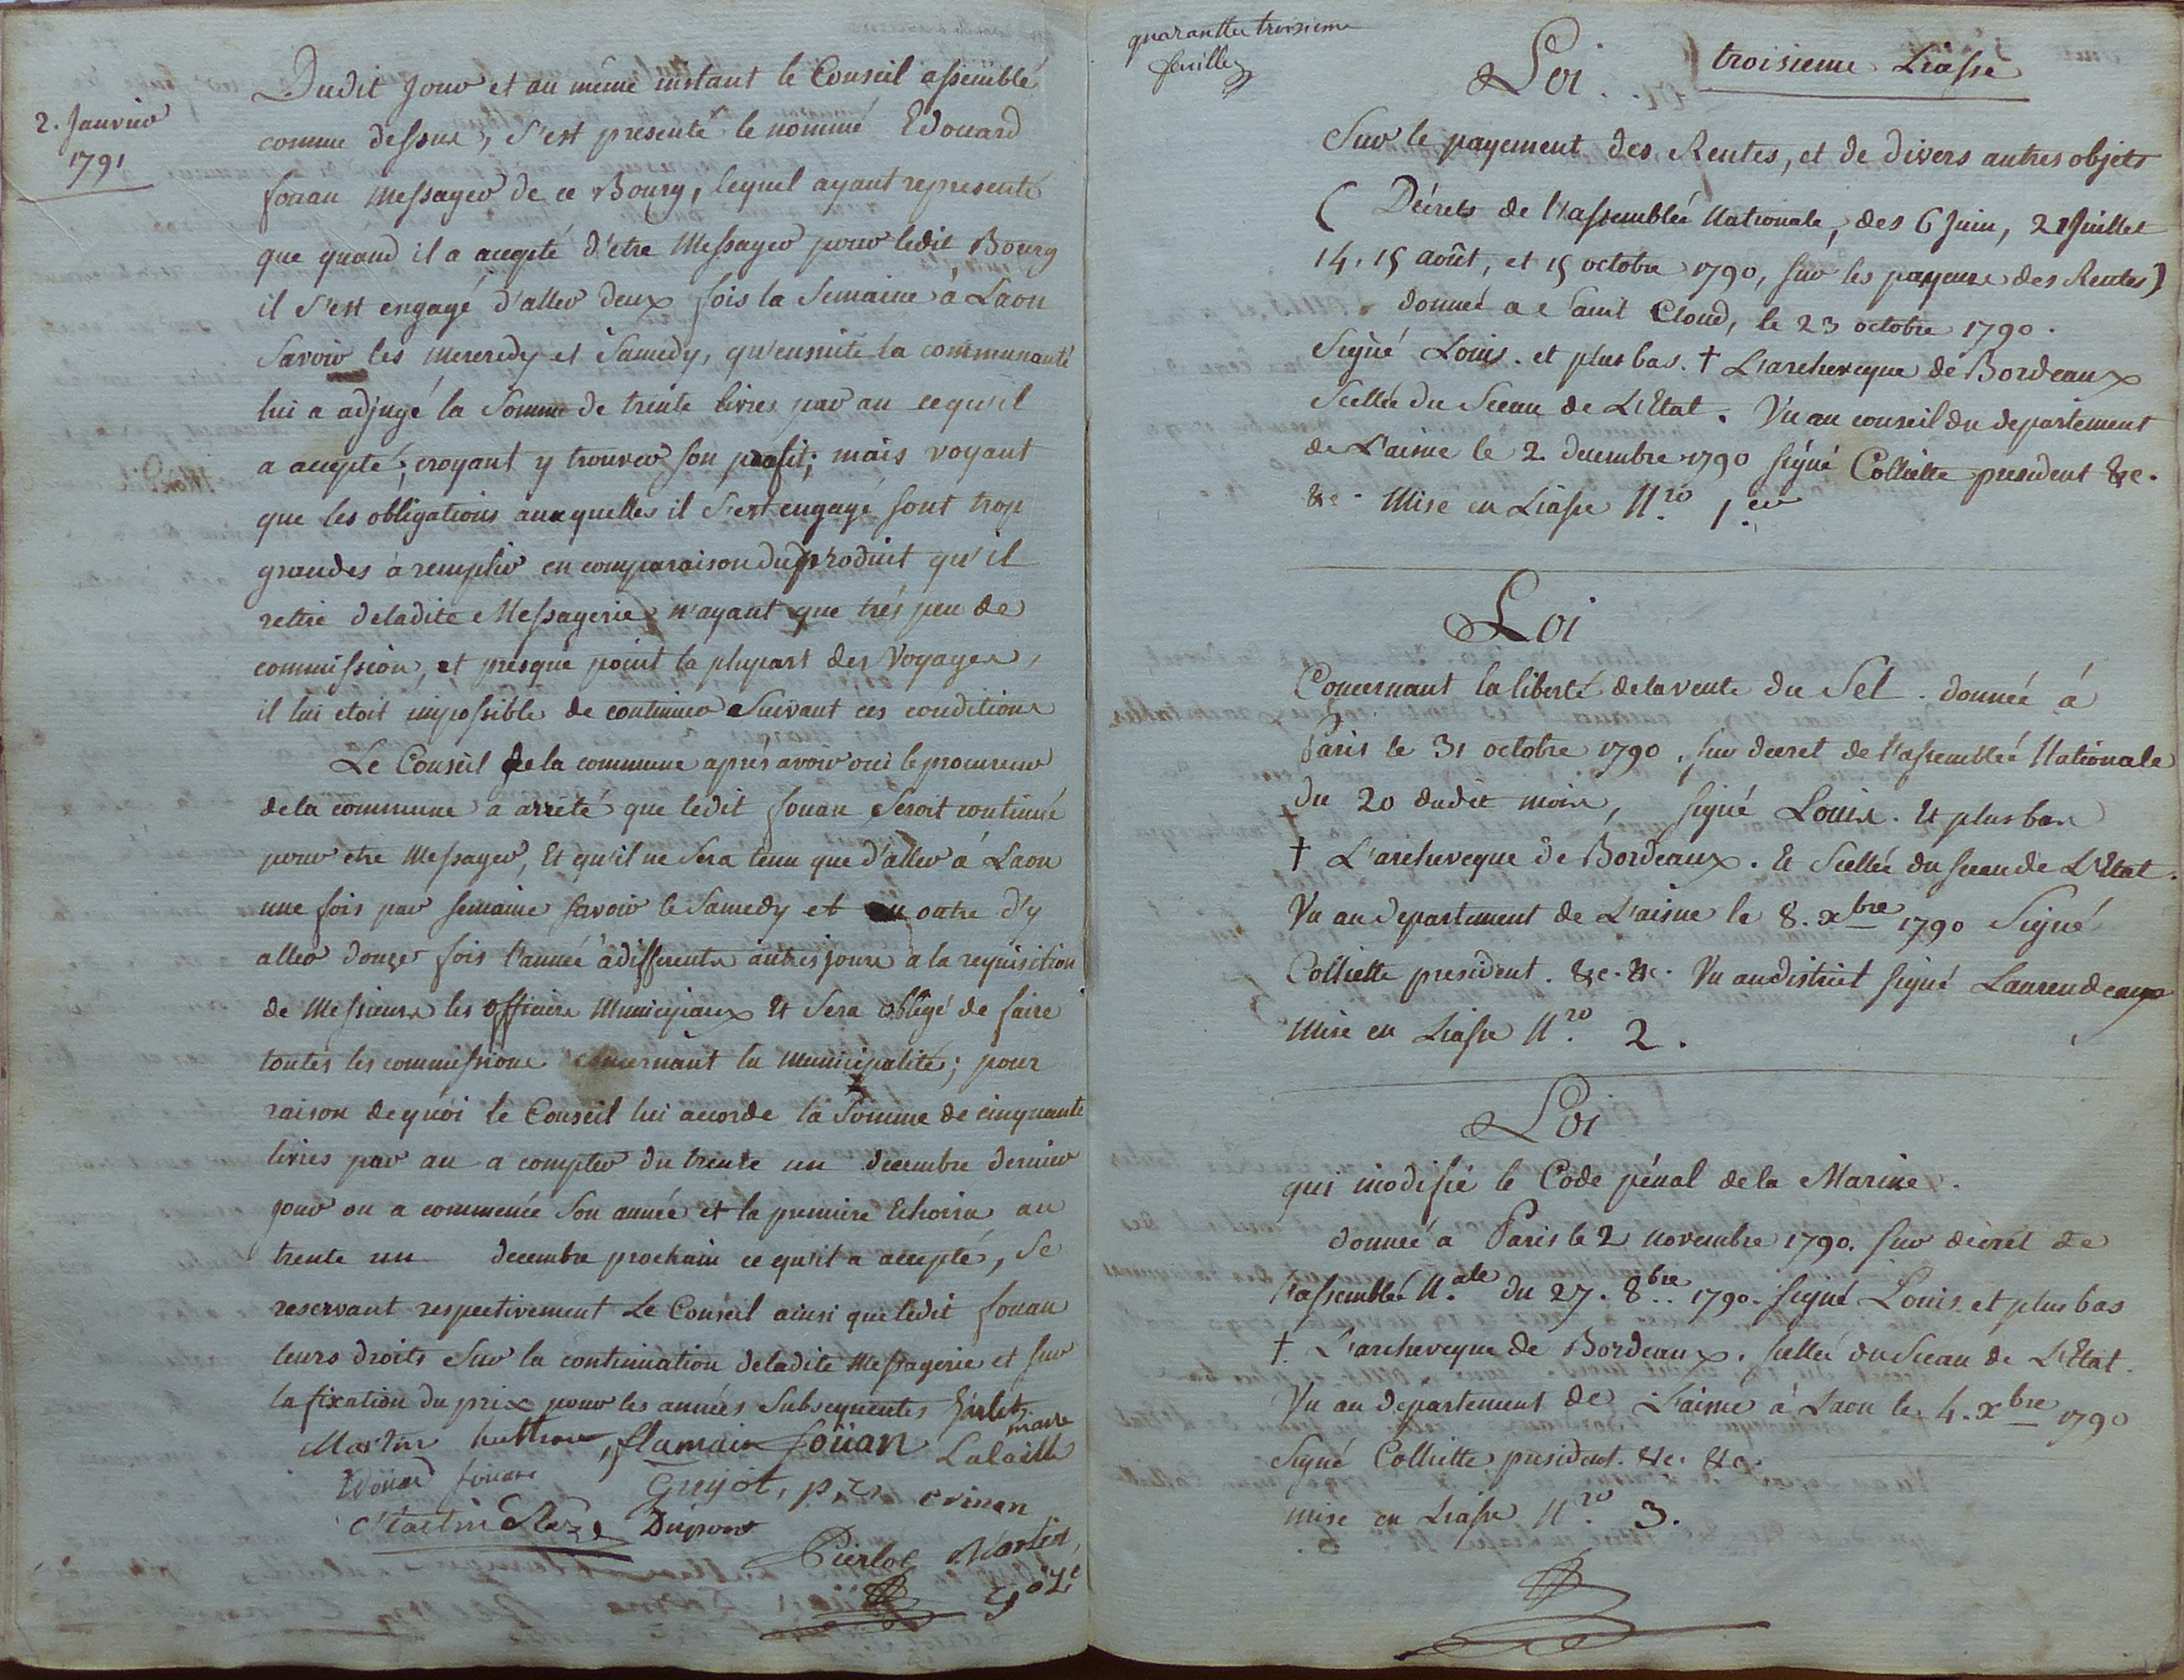 2. Janvier
1791
Dudit Jour et au même instant le Conseil assemblé
comme dessus, s'est presenté le nommé Edouard
fouan Messager de ce Bourg, lequel ayant representé
que quand il a accepté d'etre Messager pour ledit Bourg
il s'est engagé d'aller deux fois la Semaine à Laon
Savoir les mercredy et Samedy, qu'ensuite la communauté
lui a adjugé la Somme de trente livres par an ce qu'il
a accepté, croyant y trouver son profit; mais voyant
que les obligations auxquelles il s'est engagé sont trop
grandes à remplir en comparaison du produit qu'il
retire de ladite Messagerie n'ayant que trés peu de
commission, et presque point la plupart des Voyages,
il lui etoit impossible de continuer Suivant ces conditions
Le Conseil de la commune aprés avoir oui le procureur
de la commune a arrété que ledit fouan Seroit continué
pour etre Messager, Et qu'il ne Sera tenu que d'aller à Laon
une fois par semaine savoir le Samedy et en outre d'y
aller douze fois l'année à differents autres jours a la requisition
de Messieurs les officiers Municipaux Et Sera obligé de faire
toutes les commissions concernant la municipalité; pour
raison de quoi le Conseil lui accorde la Somme de cinquante
livres par an a compter du trente un decembre dernier
jour ou a commencée Son année et la premiere Echoira au
trente un decembre prochain ce qu'il a accepté, Se
reservant respectivement Le Conseil ainsi que ledit fouan
leurs droits Sur la continuation de ladite Messagerie et sur
la fixation du prix pour les années Subsequentes
maire
Martin flamain foüan Lalaitte
Edouard fouan Guyot, p. crinon
Dupont
Pierlot Martin
quarantte troisieme
feuille
Loi. troisieme Liasse
Sur le payement des Rentes, et de divers autres objets
( Décrets de l'assemblée Nationale, des 6 Juin, 21 Juillet
14, 15 août, et 15 octobre 1790, sur les payeurs des Rentes)
donnée a Saint Cloud, le 23 octobre 1790.
Signé Louis. et plus bas. † L'archeveque de Bordeaux
Scellée du Sceau de L'Etat. Vu au conseil du departement
de L'aisne le 2 decembre 1790 signé Colliette president &c.
&c. Mise en Liasse N.ro 1.er
Loi
Concernant la liberté de la vente du Sel. donnée à
Paris le 31 octobre 1790. sur decret de l'assemblée Nationale
du 20 dudit mois, signé Louis. Et plus bas
† L'archeveque de Bordeaux. Et Scellée du sceau de L'Etat.
Vu au departement de L'aisne le 8. xbre 1790 Signé
Colliette president. &c. &c. Vu au district signé Laurendeaux
Mise en Liasse N.ro 2.
Loi
qui modifie le Code pénal de la Marine.
donnée à Paris le 2 novembre 1790. sur décret de
l'assemblée N.ale du 27. 8bre 1790. signé Louis. et plus bas
†. L'archeveque de Bordeaux. scellée du Sceau de L'Etat.
Vu au departement de L'aisne à Laon le 4. xbre 1790
Signé Colliette president. &c. &c.
mise en Liasse N.ro 3.